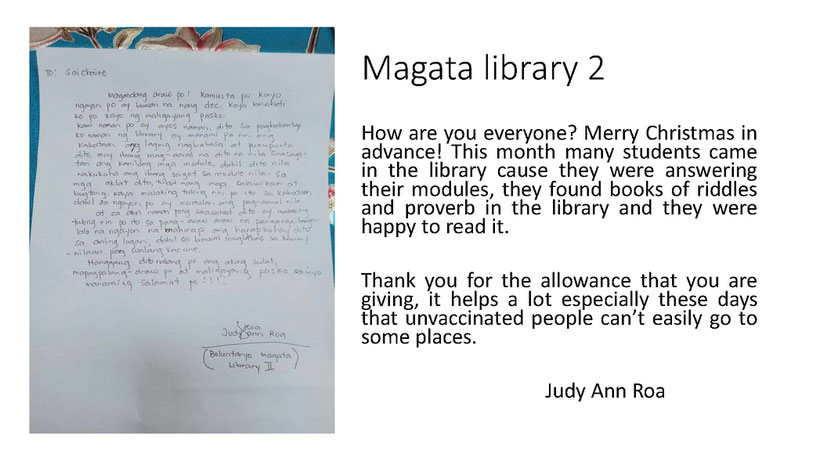 To: Sai Chaire
Magandang araw po! Kamusta po kayo
ngayon po ay buwan na nang dec. kaya
ko po kayo ng maligayang pasko.
kami naman po ay ayos naman, dito sa
ko naman ng library ay marami pa rin ang
kabataan ang laging nagbabasa at pumupunta
dito, may ibang mag-aaral na dito na nila sinasagu-
tan ang kanilang mga module, dahil dito nila
nakukuha ang ibang sagot sa module nila. sa
mga aklat dito, tulad nang mga salawikaan at
bugtong. kaya malaking tulong rin po ito sa kabataan,
dahil sa ngayon po ay modular ang pag-aaral nila.
at sa akin naman pong sinasahod dito ay malaking
tulong rin po ito sa pang araw araw na
lalo na ngayon na mahirap ang hanapbuhay dito
sa aming lugar, dahil sa bawal
nilaan pong walang vaccine.
Hanggang dito nalang po ang aking sulat,
mapagpalang-araw po at maligayang pasko sa inyo
maraming salamat po!!!!
Roa
Judy Ann Roa
(Boluntaryo Magata
Library II)
Magata library 2
How are you everyone? Merry Christmas in
advance! This month many students came
in the library cause they were answering
their modules, they found books of riddles
and proverb in the library and they were
happy to read it.
Thank you for the allowance that you are
giving, it helps a lot especially these days
that unvaccinated people can't easily go to
some places.
Judy Ann Roa